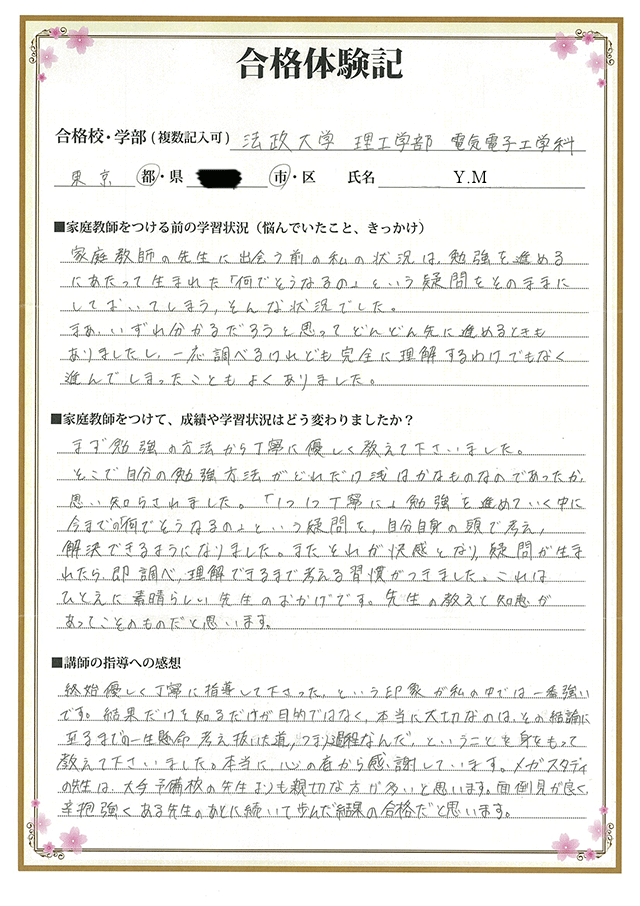 合格体験記
合格校・学部(複数記入可) 法政大学 理工学部 電気電子工学科
東京 都・県 市・区 氏名 Y.M
■家庭教師をつける前の学習状況（悩んでいたこと、きっかけ）
家庭教師の先生に出会う前の私の状況は、勉強を進める
にあたって生まれた「何でそうなるの」という疑問をそのままに
しておいてしまう、そんな状況でした。
まあ、いずれ分かるだろうと思ってどんどん先に進めるときも
ありましたし、一応調べるけれども完全に理解するわけでもなく
進んでしまったこともよくありました。
■家庭教師をつけて、成績や学習状況はどう変わりましたか？
まず勉強の方法から丁寧に優しく教えて下さいました。
そこで自分の勉強方法がどれだけ浅はかなものなのであったか、
思い知らされました。「1つ1つ丁寧に」勉強を進めていく中に
今までの「何でそうなるの」という疑問を、自分自身の頭で考え、
解決できるようになりました。またそれが快感となり、疑問が生ま
れたら、即調べ、理解できるまで考える習慣がつきました。これは
ひとえに素晴らしい先生のおかげです。先生の教えと知恵が
あってこそのものだと思います。
■講師の指導への感想
終始優しく丁寧に指導して下さった、という印象が私の中では一番強い
です。結果だけを知るだけが目的ではなく、本当に大切なのは、その結論に
至るまでの一生懸命考え抜いた道、つまり過程なんだ、ということを身をもって
教えて下さいました。本当に心の底から感謝しています。メガスタディ
の先生は、大手予備校の先生よりも親切な方が多いと思います。面倒見が良く、
辛抱強くある先生のあとに続いて歩んだ結果の合格だと思います。